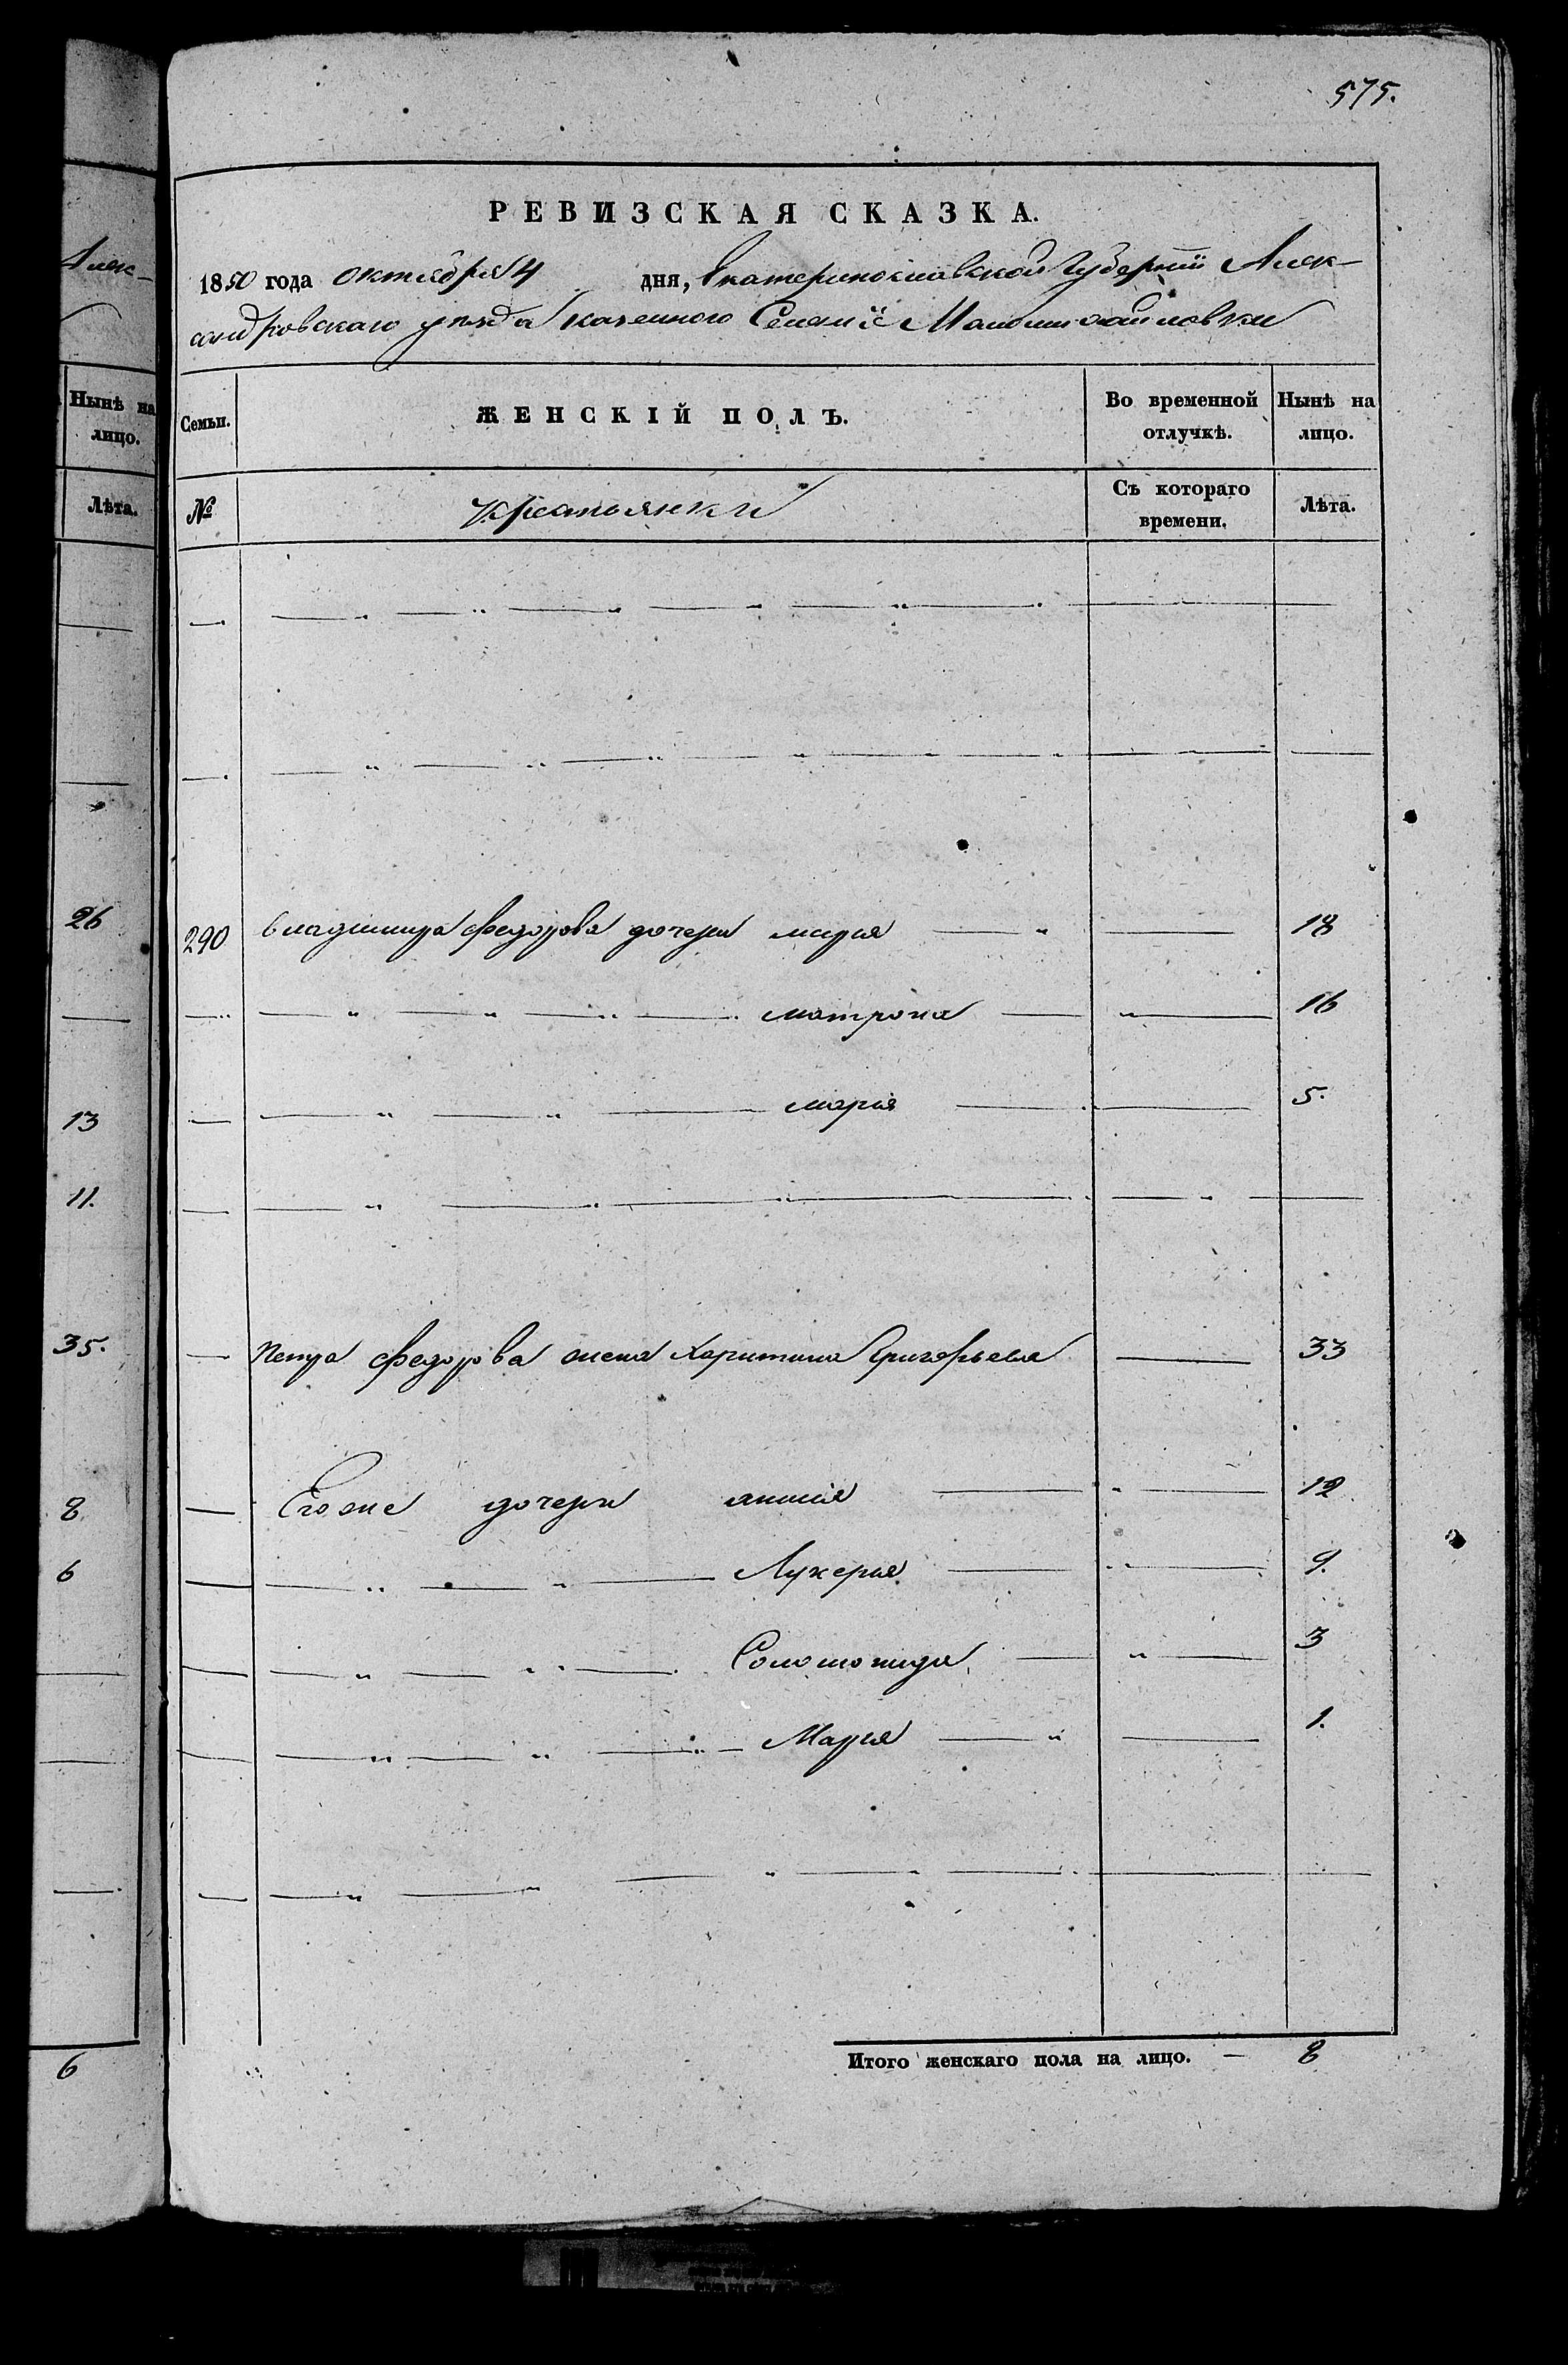 575.
РЕВИЗСКАЯ СКАЗКА.
1850 года октября 4 дня, Екатеринославской Губернии Алек-
сандровскаго уезда казенного Селения Маломихайловки
Семьи. ЖЕНСКІЙ ПОЛЪ. Во временной отлучкѣ. Нынѣ на лицо.
№ крестьянки Съ котораго времени. Лѣта.
290 Владимира Федорова дочери мария 18
матрона 16
мария 5.
Петра Федорова жена Харитина Григорьева 33
Егоже дочери 12
Лукерия 9.
Соломонида 3
Мария 1.
Итого женскаго пола на лицо. — 8
Алек-
Нынѣ на лицо.
Лѣта.
26
13
11.
35.
8
6
6